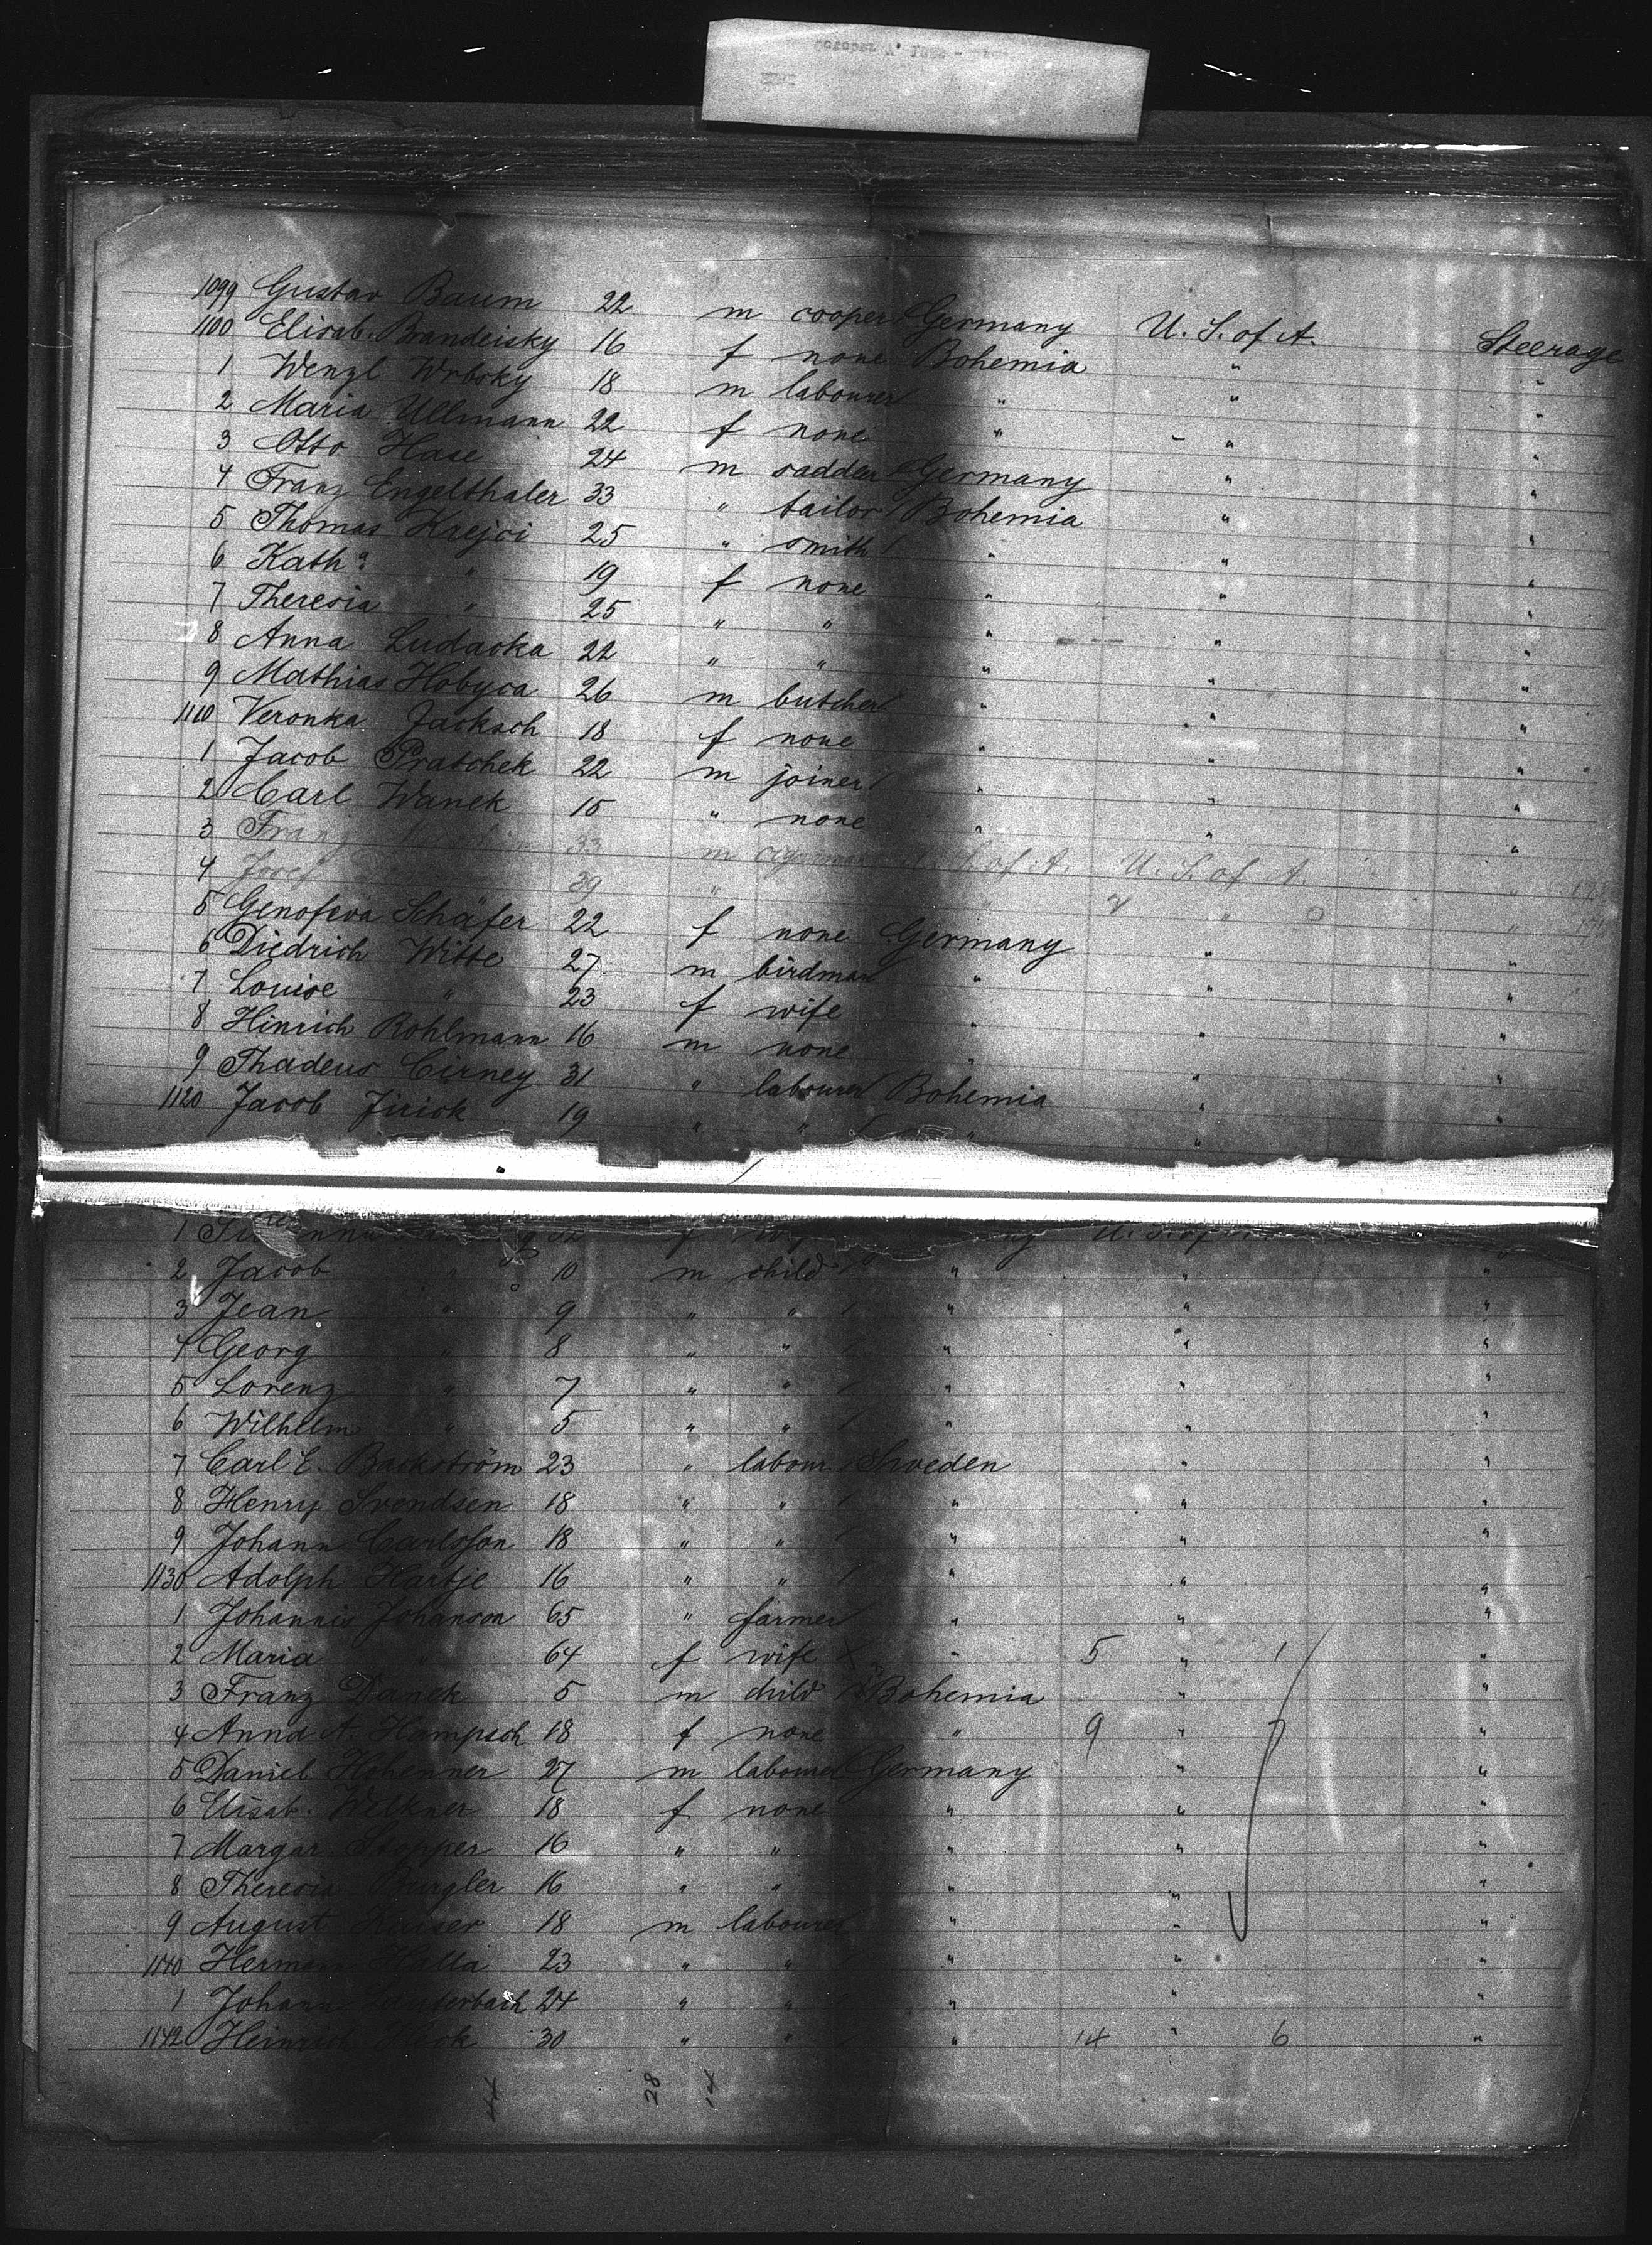 1099 Gustav Baum 22 m cooper Germany U. S. of A. Steerage
1100 Elisab. Brandeisky 16 f none Bohemia " "
1 Wenzl Wrbsky 18 m labourer " " "
2 Maria Ullmann 22 f none " " "
3 Otto Hase 24 m saddler Germany " "
4 Franz Engelthaler 33 " tailor Bohemia " "
5 Thomas Krejci 25 " smith " " "
6 Kath. " 19 f none " " "
7 Theresia " 25 " " " " "
8 Anna Ludacka 22 " " " " "
9 Mathias Hobyca 26 m butcher " " "
1110 Veronka Jacksch 18 f none " " "
1 Jacob Pratschek 22 m joiner " " "
2 Carl Wanek 15 " none " " "
3 Franz 33 m S. of A. U. S. of A. "
4 Josef 39 " " " "
5 Genofeva Schäfer 22 f none Germany " "
6 Diedrich Witte 27 m birdman " " "
7 Louise " 23 f wife " " "
8 Hinrich Rohlmann 16 m none " " "
9 Thadeus Cirney 31 " labourer Bohemia " "
1120 Jacob Jirick 19 " " " " "
1 f U. S. of
2 Jacob " 10 m child " " "
3 Jean " 9 " " " " "
4 Georg " 8 " " " " "
5 Lorenz " 7 " " " " "
6 Wilhelm " 5 " " " " "
7 Carl E. Backström 23 " labour Sweden " "
8 Henry Svendsen 18 " " " " "
9 Johann Carlsson 18 " " " " "
1130 Adolph Hartje 16 " " " " "
1 Johannis Johanson 65 " farmer " " "
2 Maria 64 f wife " 5 " 1 "
3 Franz Danek 5 m child Bohemia " "
4 Anna A. Hampsch 18 f none " 9 " "
5 Daniel Hohenner 27 m labourer Germany " "
6 Elisab. Welkner 18 f none " " "
7 Margar. Stopper 16 " " " " "
8 Theresia Burgler 16 " " " " "
9 August Kaiser 18 m labourer " " "
1140 Hermann Halla 23 " " " " "
1 Johann Lauterbach 24 " " " "
1142 Heinrich 30 " " " 14 " 6 "
28 14